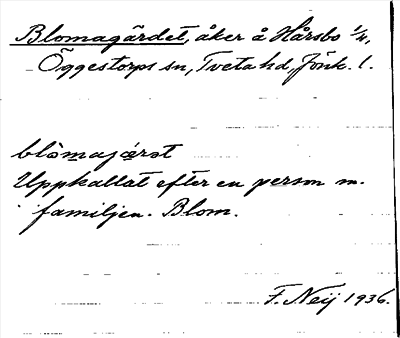 Blomagärdet, åker å Hårsbo 1/4,
Öggestorps sn, Tveta hd, Jönk. l.
blòmajærət
Uppkallat efter en person m.
familjen. Blom.
F. Neij 1936.